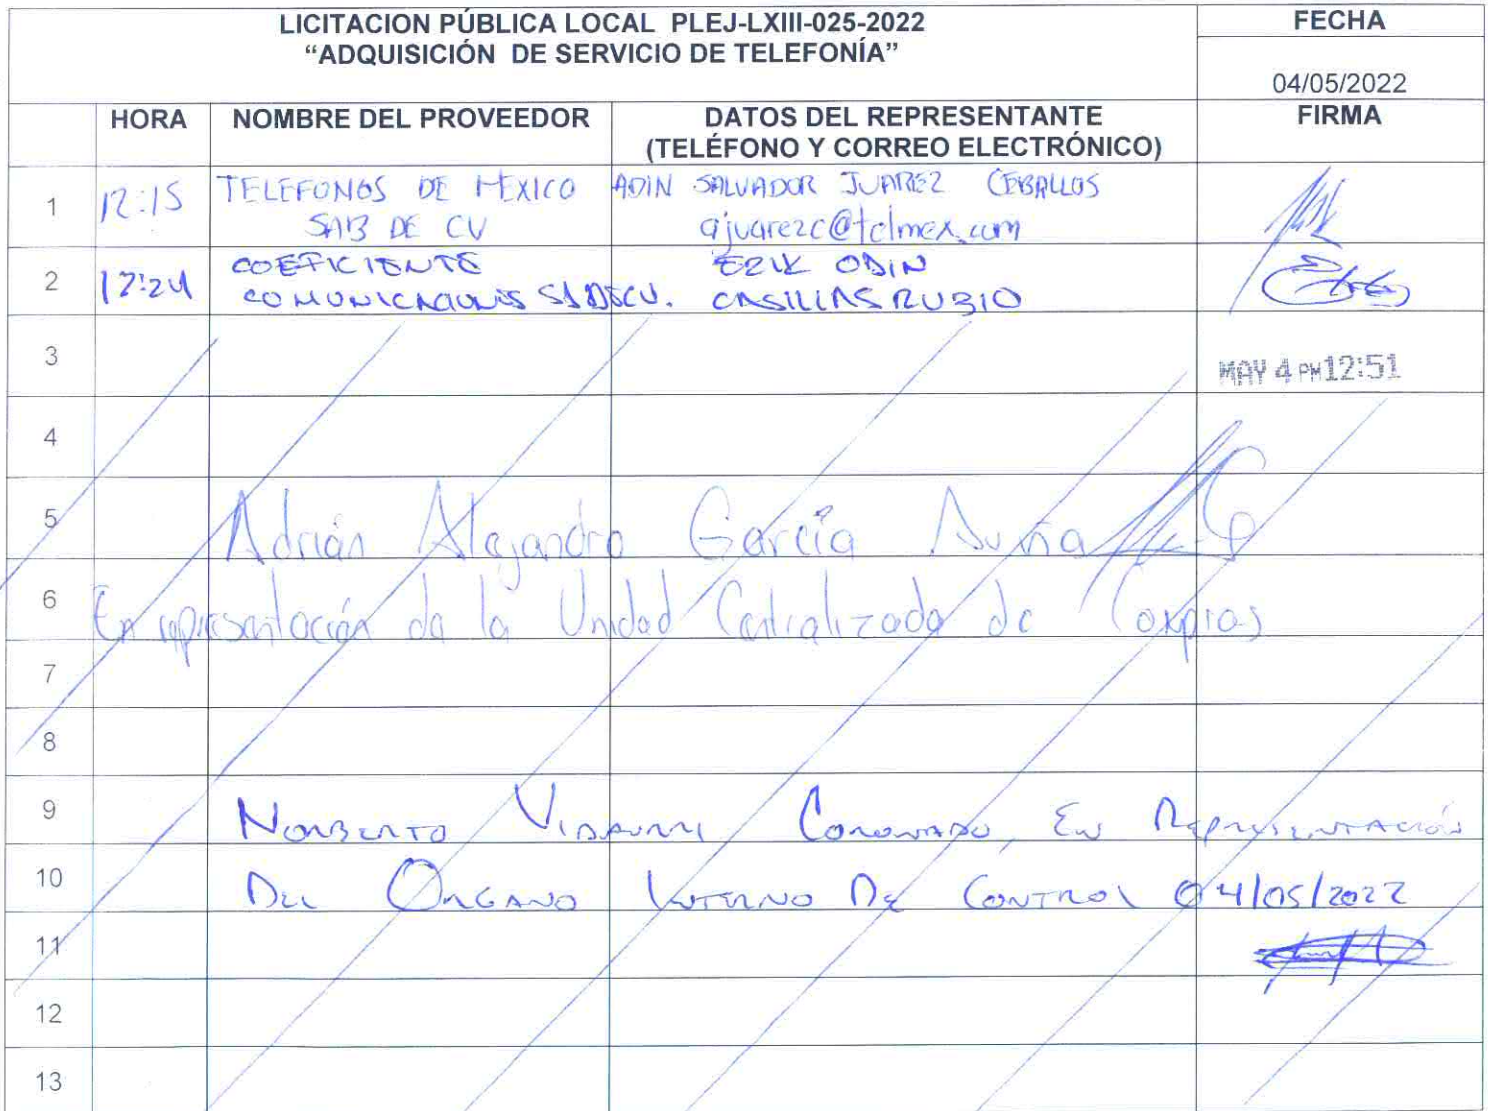 LICITACION PÚBLICA LOCAL PLEJ-LXIII-025-2022
“ADQUISICIÓN DE SERVICIO DE TELEFONÍA”
FECHA
04/05/2022
HORA
NOMBRE DEL PROVEEDOR
DATOS DEL REPRESENTANTE
(TELÉFONO Y CORREO ELECTRÓNICO)
FIRMA
1
12:15
TELEFONOS DE MEXICO
SAB DE CV
ADIN SALVADOR JUAREZ CEBALLOS
ajuarezc@telmex.com
2
12:24
COEFICIENTE
COMUNICACIONES SADECV.
ERIK ODIN
CASILLAS RUBIO
3
MAY 4 PM12:51
4
5
Adrián Alejandro García
6
En representación de la Unidad Centralizada de Compras
7
8
9
NORBERTO VIDAURRI CORONADO, EN REPRESENTACIÓN
10
DEL ORGANO INTERNO DE CONTROL 04/05/2022
11
12
13